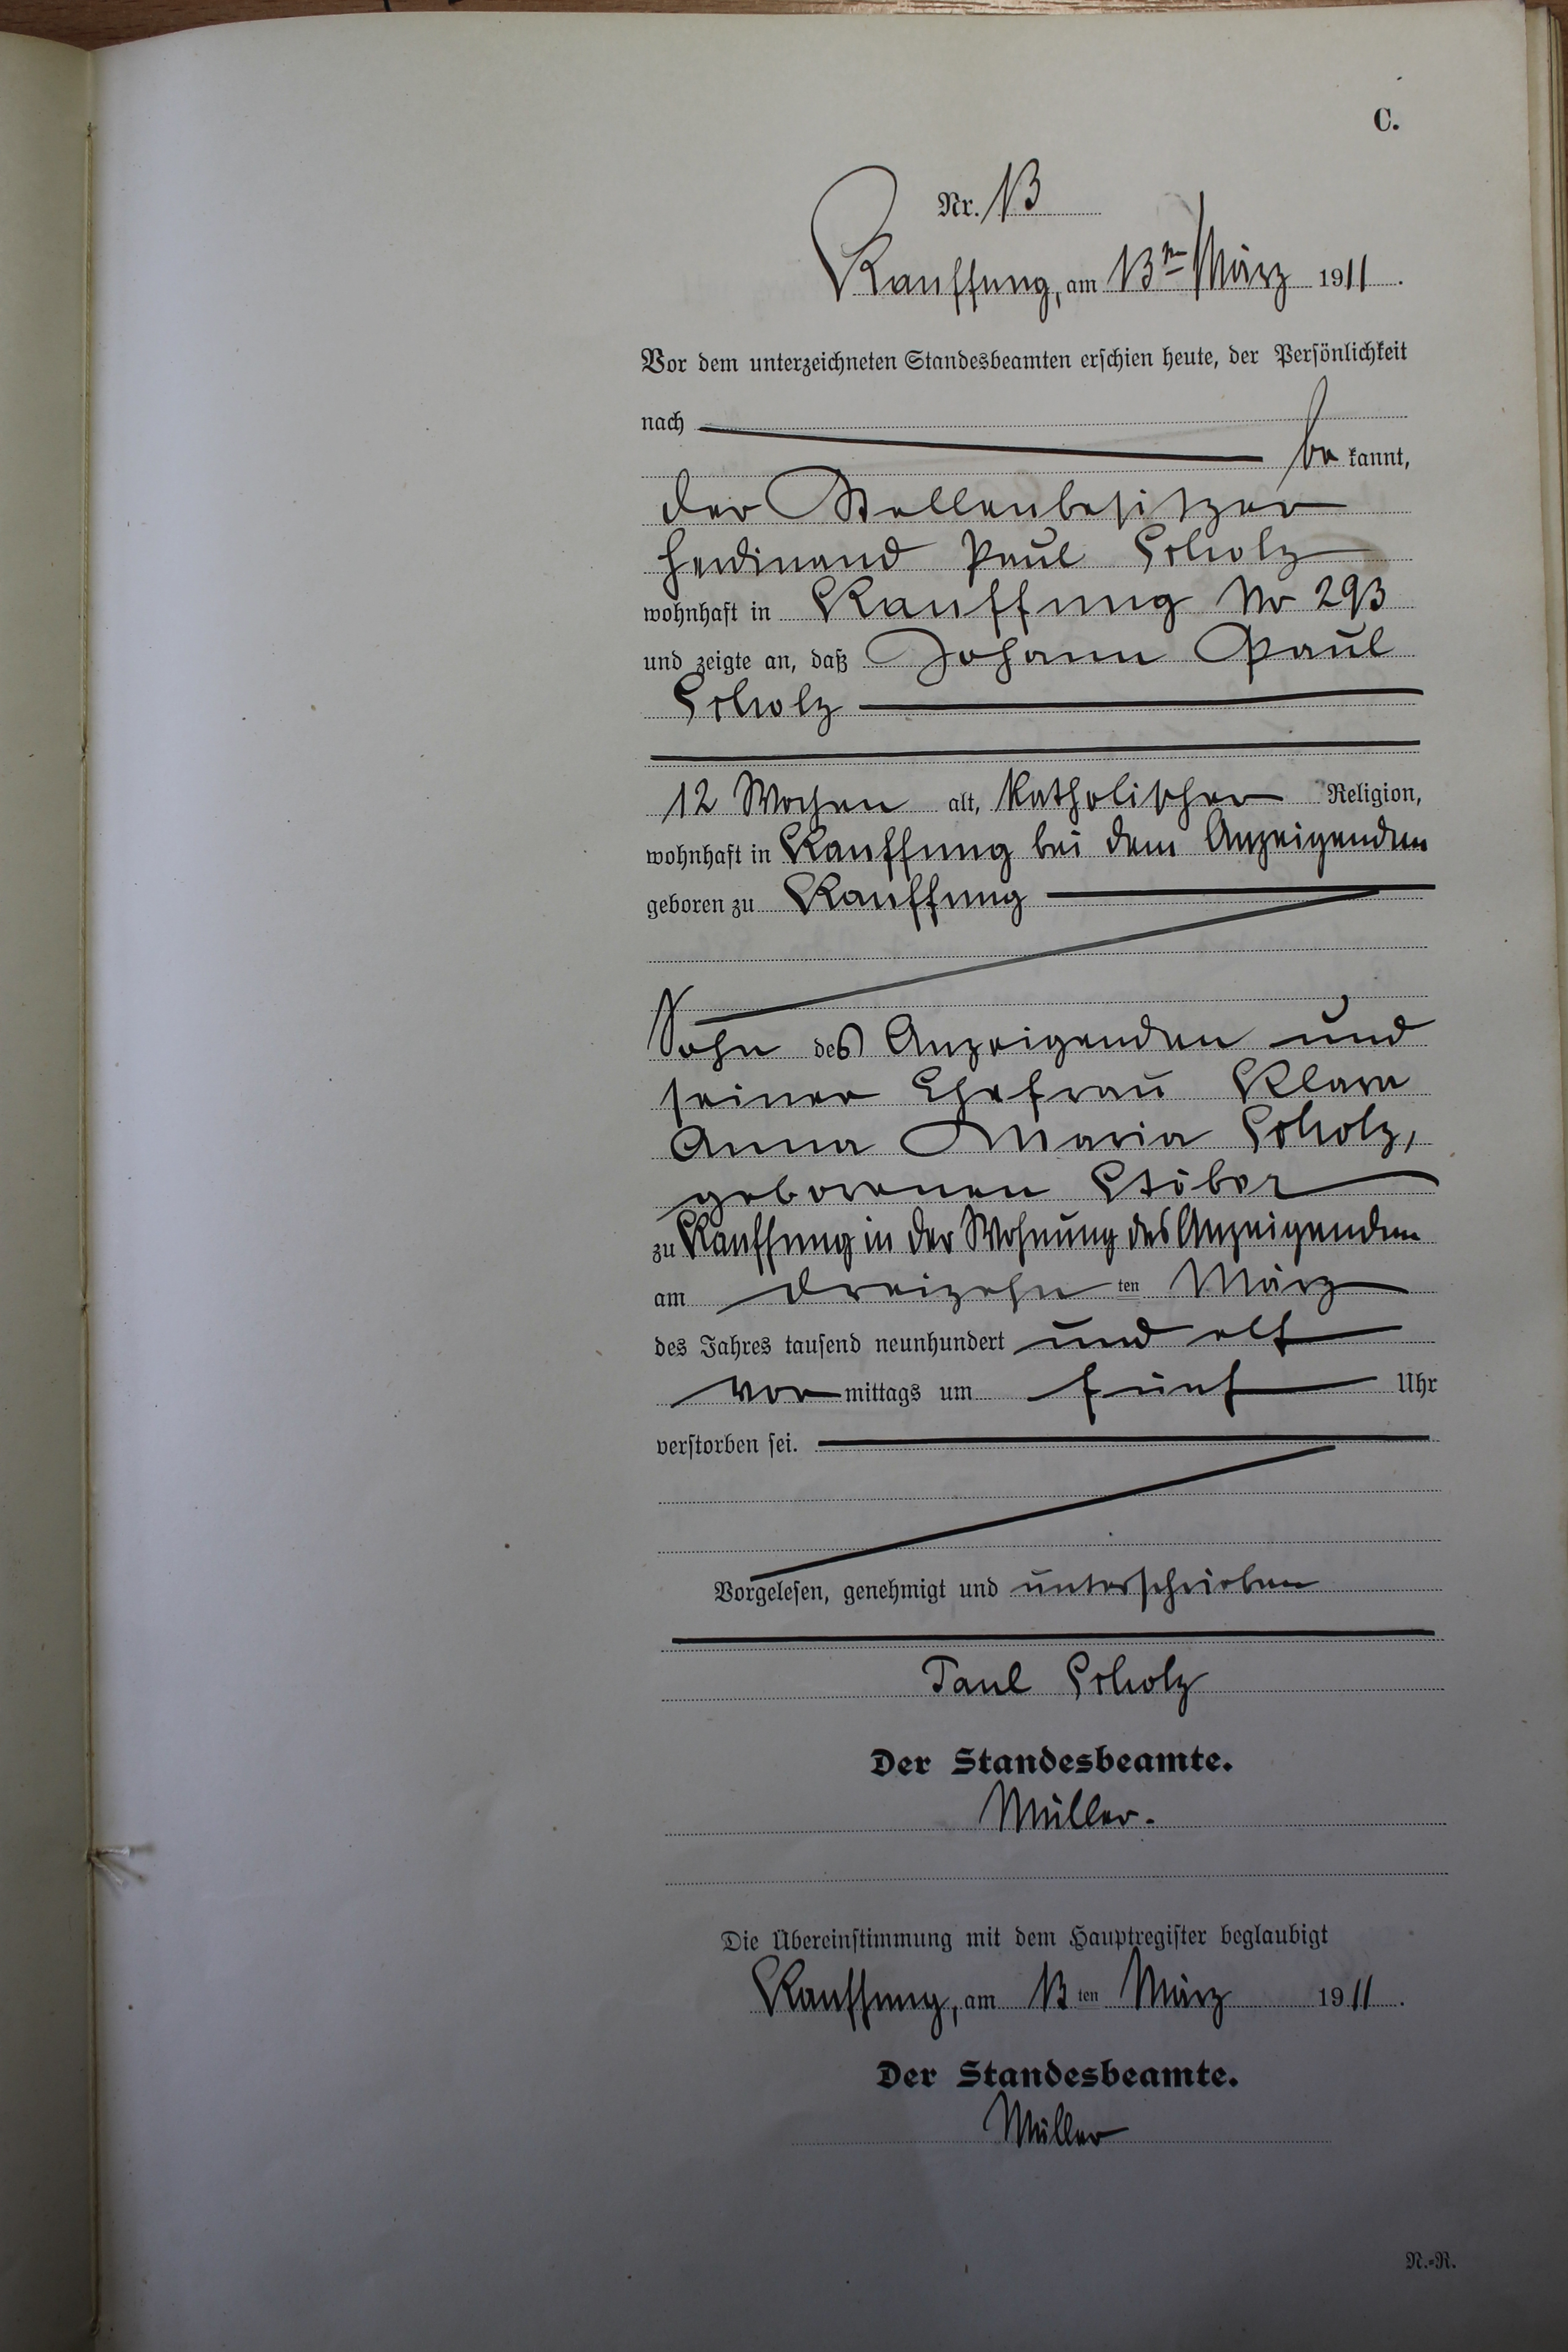 C.
Nr. 13
Kauffung, am 13ten März 1911.
Vor dem unterzeichneten Standesbeamten erschien heute, der Persönlichkeit
nach
bekannt,
der Stellenbesitzer
Ferdinand Paul Scholz
wohnhaft in Kauffung No 293
und zeigte an, daß Johann Paul
Scholz
12 Wochen alt, katholischer Religion,
wohnhaft in Kauffung bei dem Anzeigenden
geboren zu Kauffung
Sohn des Anzeigenden und
seiner Ehefrau Klara
Anna Maria Scholz,
geborenen Stöber
zu Kauffung in der Wohnung des Anzeigenden
am dreizehnten März
des Jahres tausend neunhundert und elf
vormittags um fünf Uhr
verstorben sei.
Vorgelesen, genehmigt und unterschrieben
Paul Scholz
Der Standesbeamte.
Müller.
Die Übereinstimmung mit dem Hauptregister beglaubigt
Kauffung, am 13ten März 1911.
Der Standesbeamte.
Müller
N.-R.